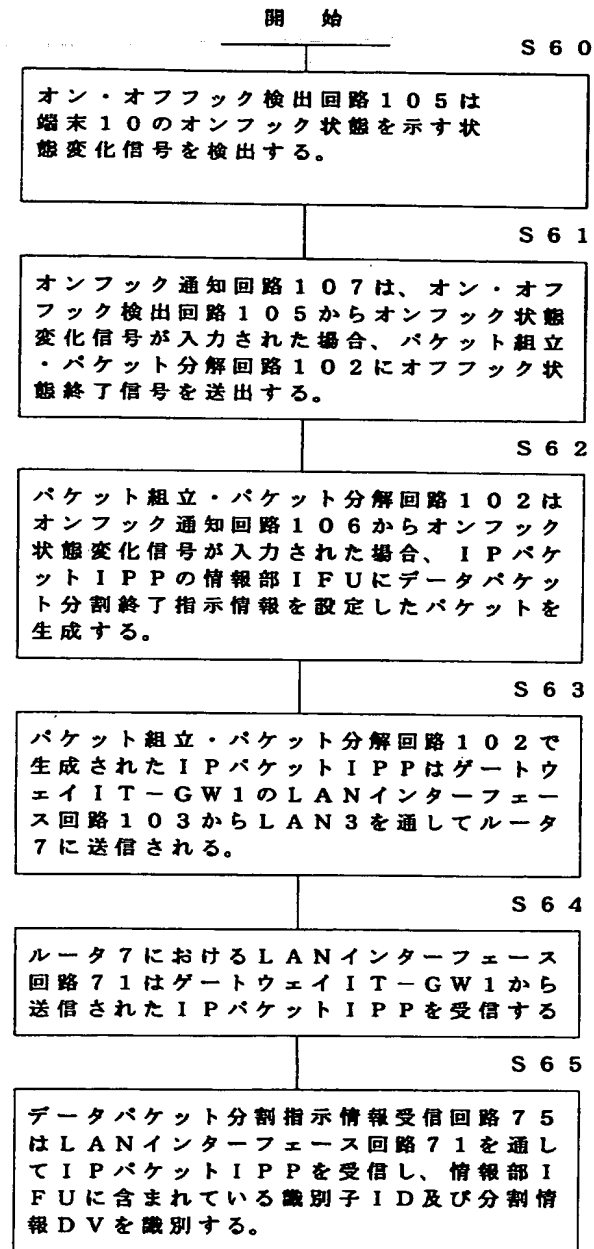 開　始
S60
オン・オフフック検出回路105は
端末10のオンフック状態を示す状
態変化信号を検出する。
S61
オンフック通知回路107は、オン・オフ
フック検出回路105からオンフック状態
変化信号が入力された場合、パケット組立
・パケット分解回路102にオフフック状
態終了信号を送出する。
S62
パケット組立・パケット分解回路102は
オンフック通知回路106からオンフック
状態変化信号が入力された場合、IPパケ
ットIPPの情報部IFUにデータパケッ
ト分割終了指示情報を設定したパケットを
生成する。
S63
パケット組立・パケット分解回路102で
生成されたIPパケットIPPはゲートウ
ェイIT-GW1のLANインターフェー
ス回路103からLAN3を通してルータ
7に送信される。
S64
ルータ7におけるLANインターフェース
回路71はゲートウェイIT-GW1から
送信されたIPパケットIPPを受信する
S65
データパケット分割指示情報受信回路75
はLANインターフェース回路71を通し
てIPパケットIPPを受信し、情報部I
FUに含まれている識別子ID及び分割情
報DVを識別する。